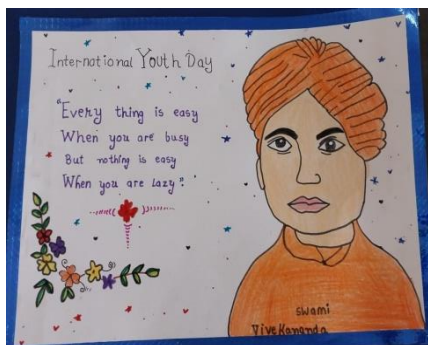 International Youth Day
"Every thing is easy
When you are busy
But nothing is easy
When you are lazy".
Swami
Vivekananda